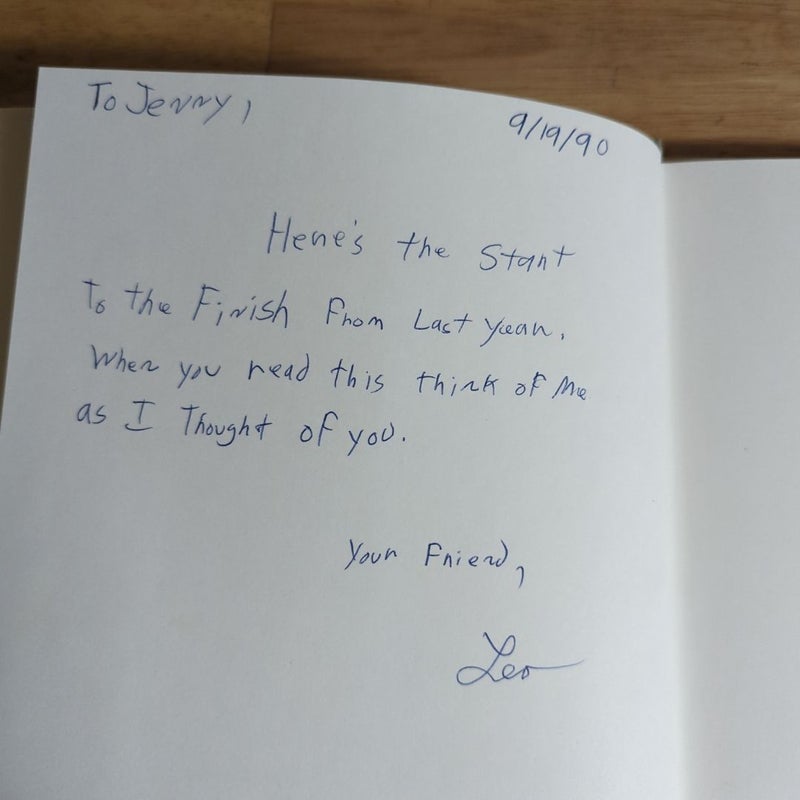 To Jenny,
9/19/90
Here's the Start
To the Finish From Last year.
When you read this think of Me
as I Thought of you.
Your Friend,
Leo